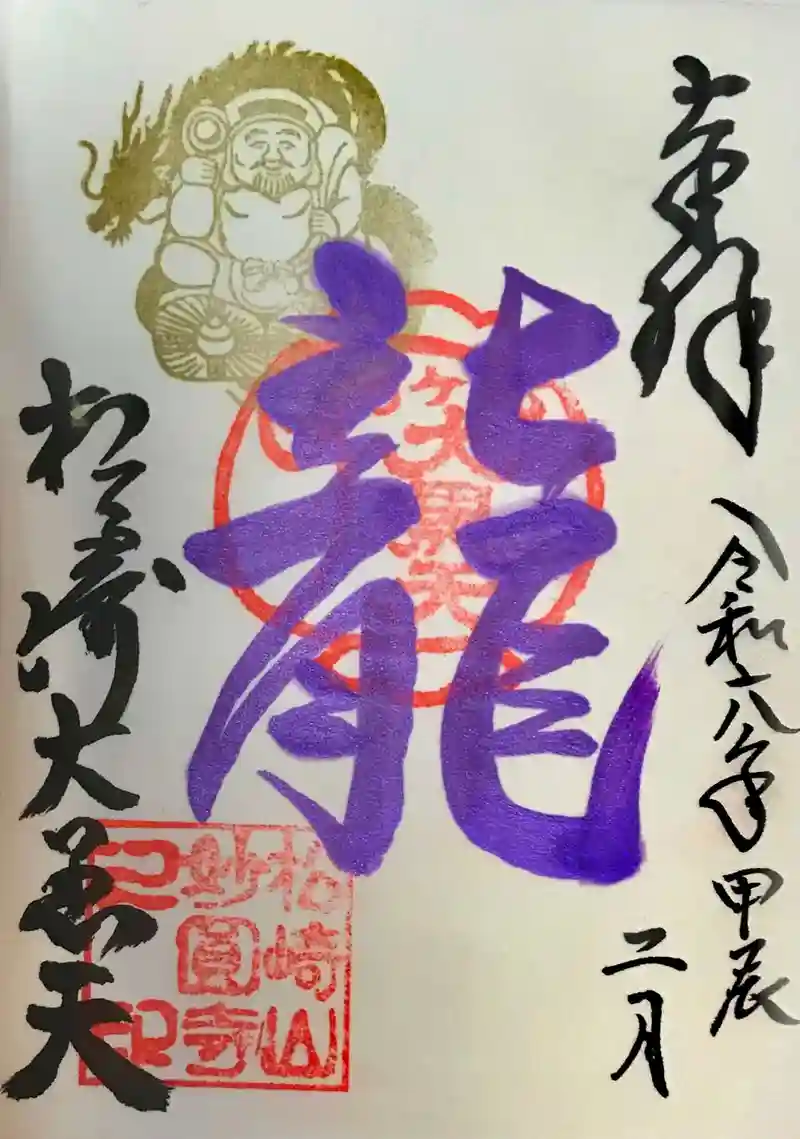 奉拝
令和六年甲辰
二月
龍
大黒天
松ヶ崎大黒天
松崎山
妙圓寺
之印